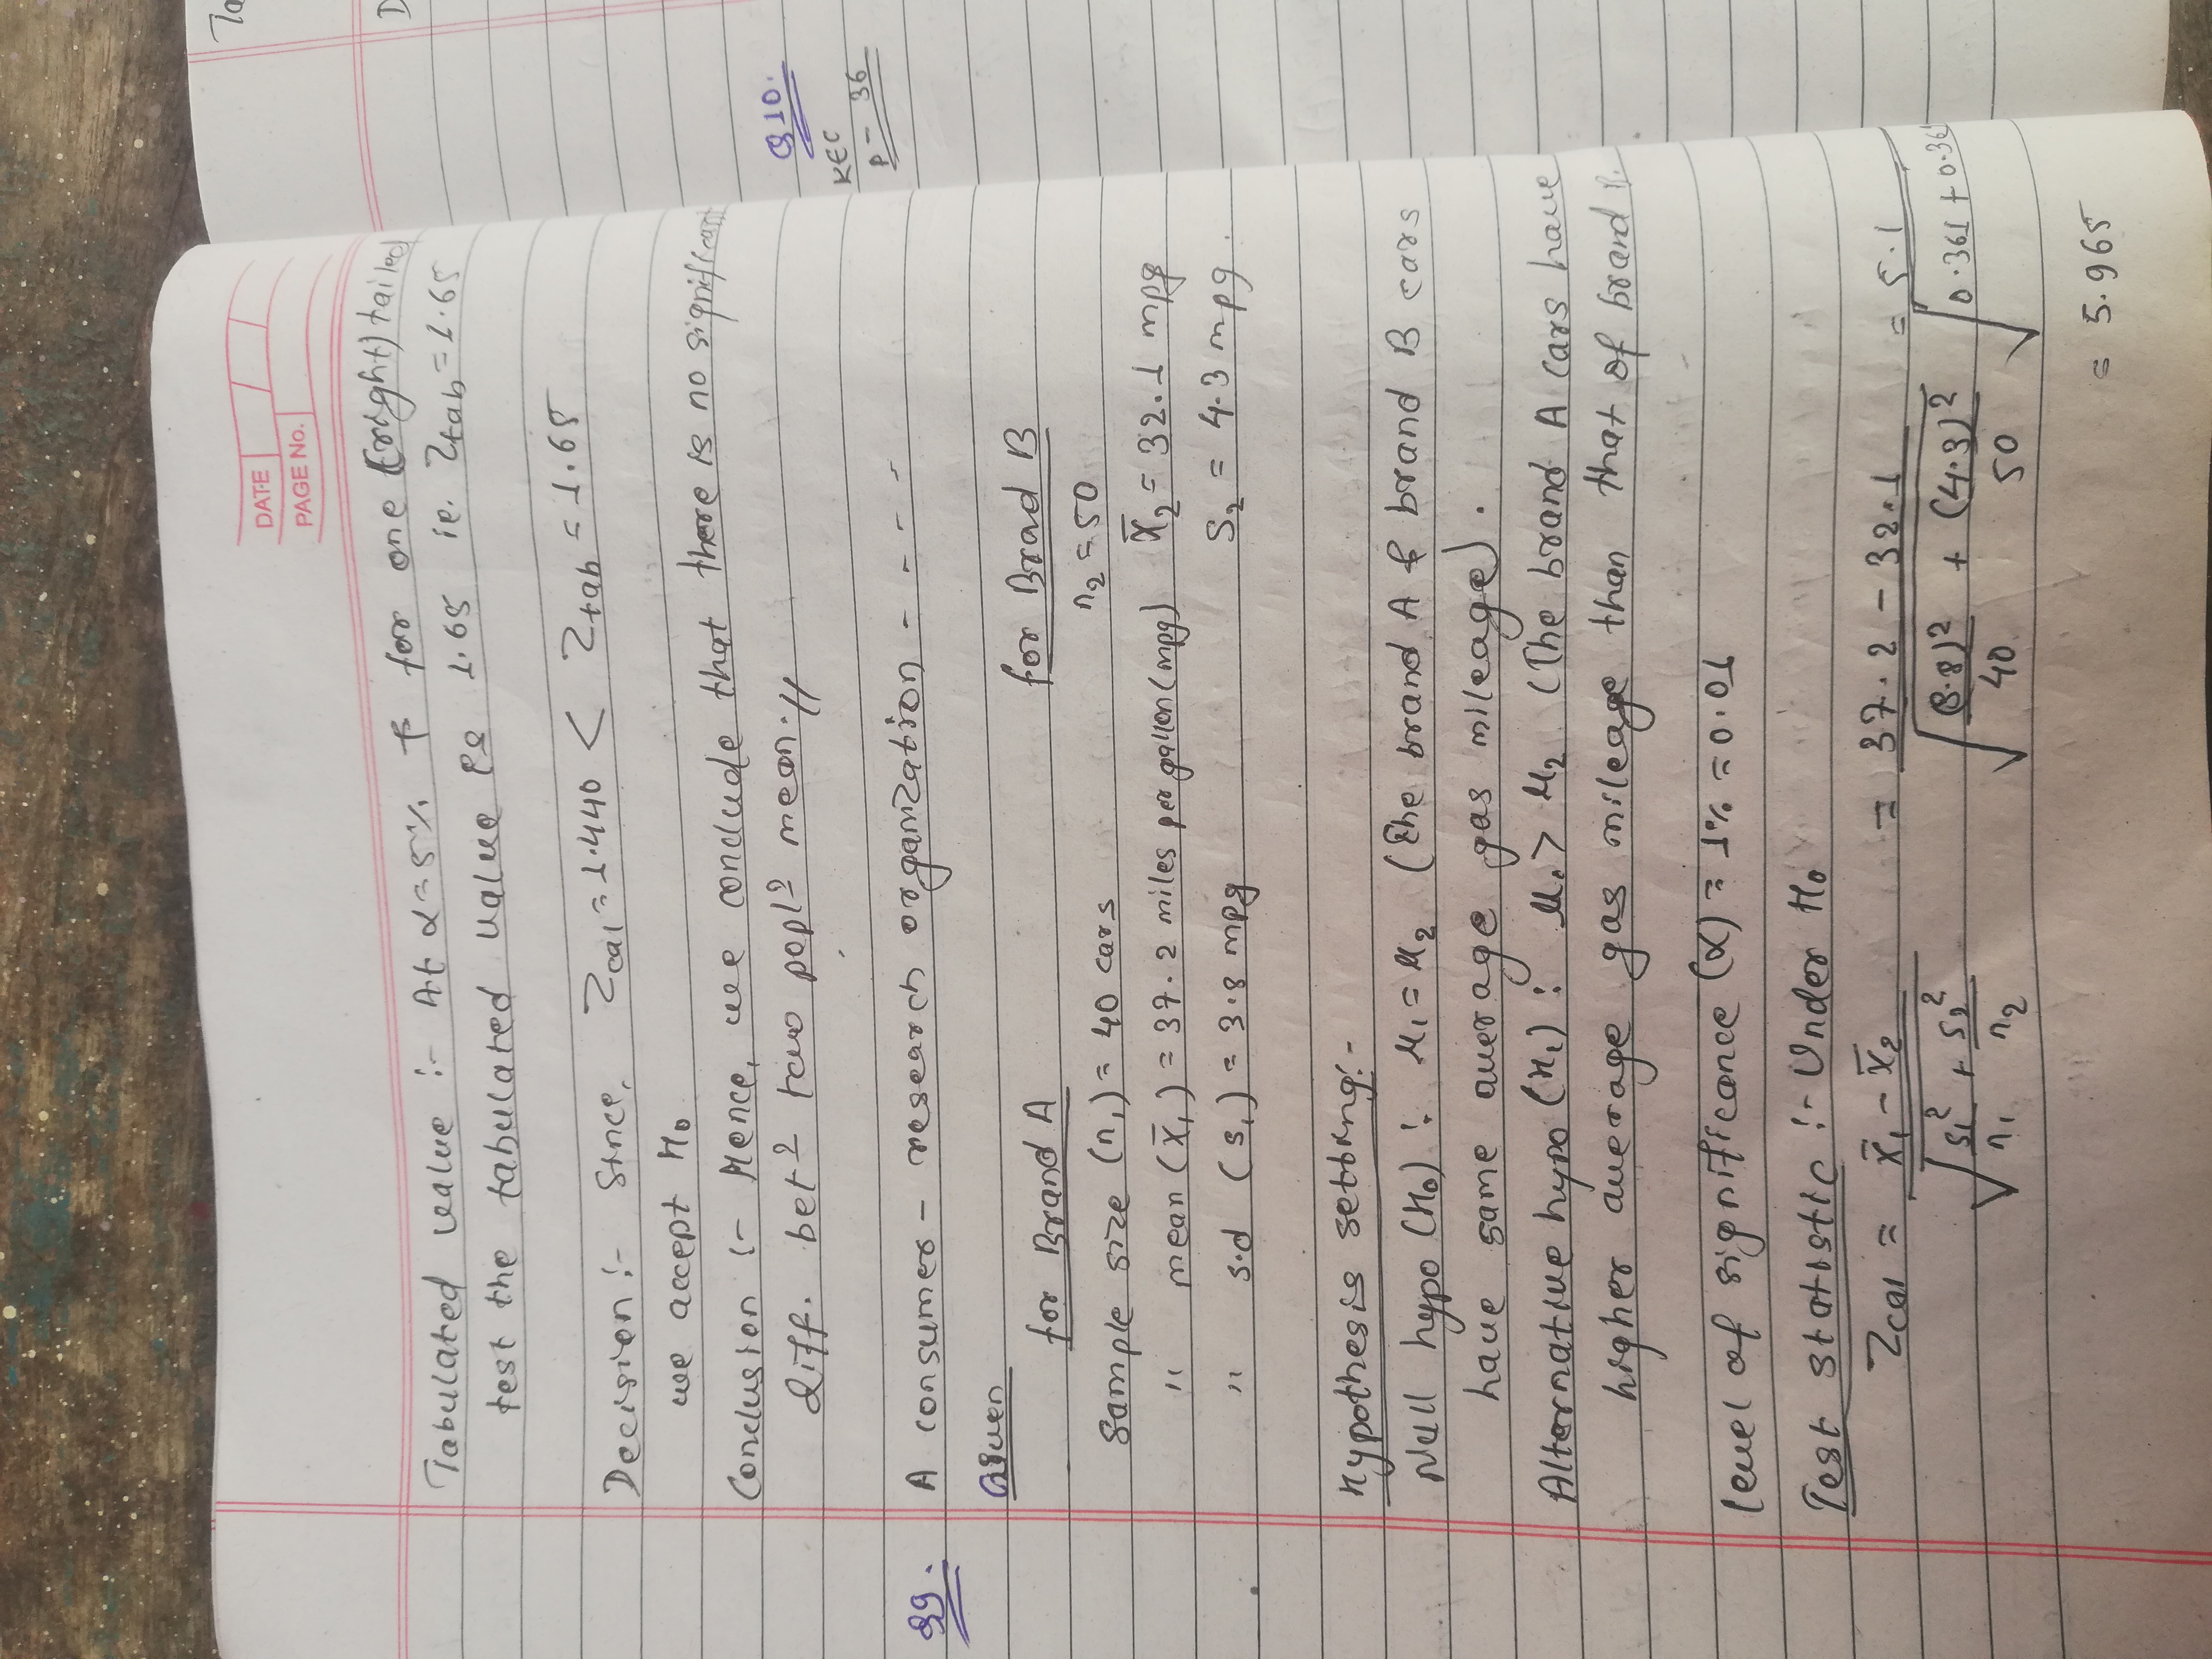 DATE
PAGE No.
Tabulated value :- At α = 5% & for one (right) tailed
test the tabulated value is 1.65 ie. Ztab = 1.65
Decision :- Since, Zcal = 1.440 < Ztab = 1.65
we accept H₀
Conclusion :- Hence, we conclude that there is no significant
diff. betⁿ two poplⁿ mean.//
Q9. A consumer - research organization - - - -
Given
for Brand A for Brad B
Sample size (n₁) = 40 cars n₂ = 50
" mean (x̄₁) = 37.2 miles per gallon (mpg) x̄₂ = 32.1 mpg
" s.d (s₁) = 3.8 mpg s₂ = 4.3 mpg.
Hypothesis setting:-
Null hypo (H₀) : μ₁ = μ₂ (The brand A & brand B cars
have same average gas mileage).
Alternative hypo (H₁) : μ₁ > μ₂ (The brand A cars have
higher average gas mileage than that of brand B.
level of significance (α) = 1% = 0.01
Test statistic :- Under H₀
Zcal = x̄₁ - x̄₂ / √(s₁²/n₁ + s₂²/n₂) = 37.2 - 32.1 / √((3.8)²/40 + (4.3)²/50) = 5.1 / √(0.361 + 0.36
= 5.965
Ta
D
Q10.
KEC
P - 36